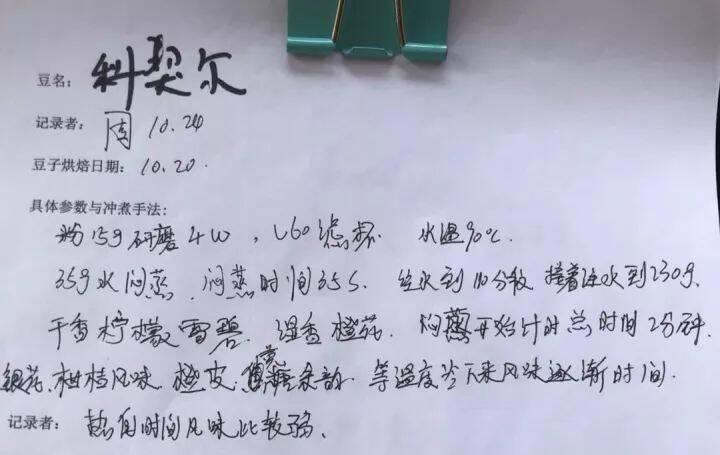 豆名: 科契尔
记录者: 周 10.24
豆子烘焙日期: 10.20.
具体参数与冲煮手法:
粉15g 研磨4W, V60滤杯 水温90℃.
35g水闷蒸, 闷蒸时间35S. 注水到110分段 接着注水到230g,
干香 柠檬 雪碧. 湿香 橙花. 闷蒸开始计时 总时间2分钟.
银花, 柑桔风味, 橙皮, 蔗糖余韵, 等温度冷下来风味逐渐时间.
记录者: 热的时间风味比较弱.